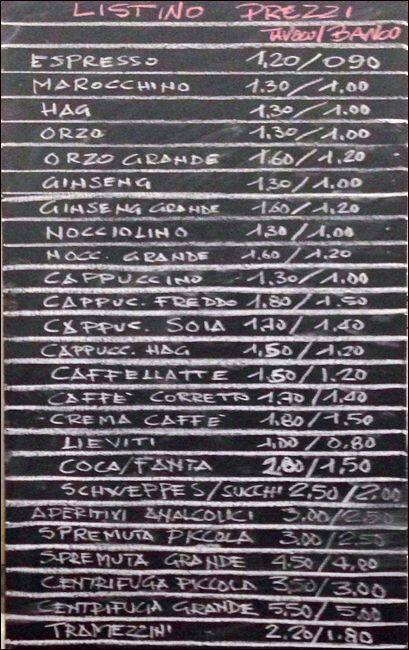 LISTINO PREZZI
TAVOLO/BANCO
ESPRESSO 1,20/0.90
MAROCCHINO 1.30/1.00
HAG 1.30/1.00
ORZO 1.30/1.00
ORZO GRANDE 1.60/1.20
GINSENG 1.30/1.00
GINSENG GRANDE 1.60/1.20
NOCCIOLINO 1.30/1.00
NOCC. GRANDE 1.60/1.20
CAPPUCCINO 1.30/1.00
CAPPUC. FREDDO 1.80/1.50
CAPPUC. SOIA 1.70/1.40
CAPPUCC. HAG 1,50/1.20
CAFFELLATTE 1.50/1.20
CAFFÈ CORRETTO 1.70/1.40
CREMA CAFFÈ 1.80/1.50
LIEVITI 1.00/0.80
COCA/FANTA 2.00/1,50
SCHWEPPES/SUCCHI 2,50/2.00
APERITIVI ANALCOLICI 3.00/2.50
SPREMUTA PICCOLA 3.00/2.50
SPREMUTA GRANDE 4.50/4.00
CENTRIFUGA PICCOLA 3.50/3.00
CENTRIFUGA GRANDE 5.50/5.00
TRAMEZZINI 2.20/1.80